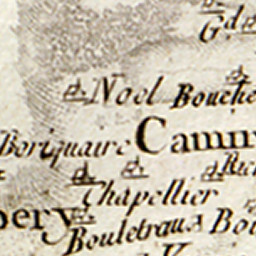 G.d
Noel Bouche
Boriquaire Camm
Ric
Chapellier
pery
Bouletraux Bou